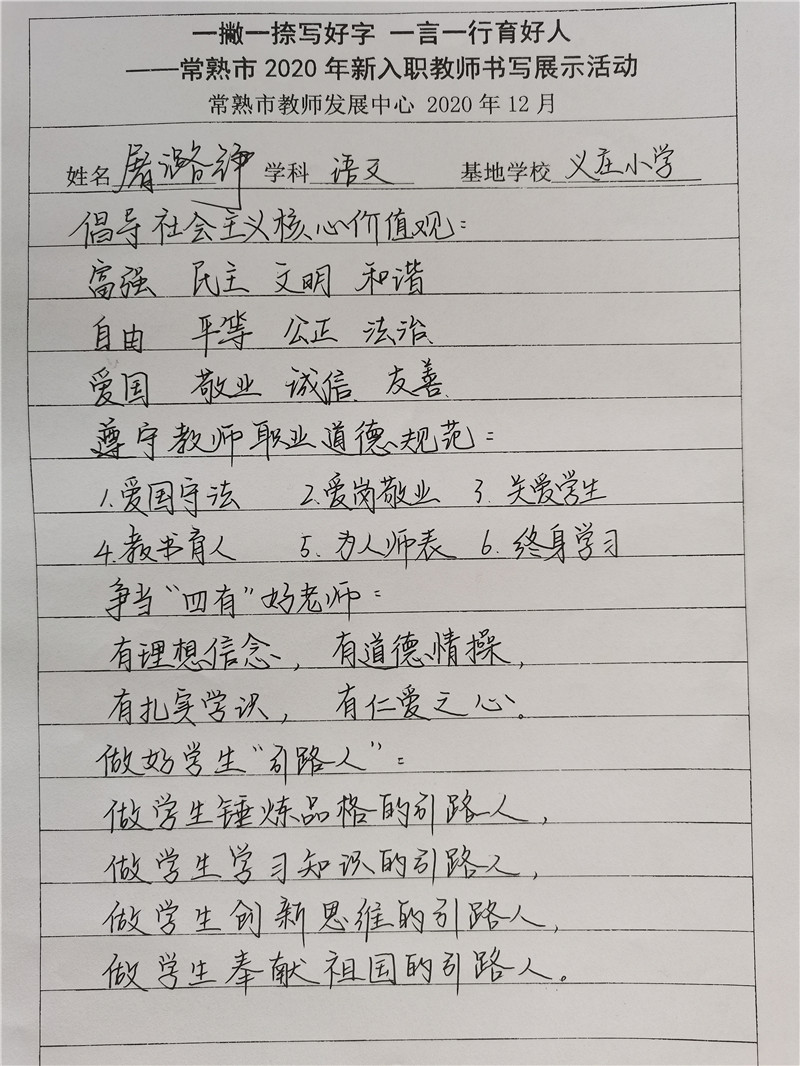 一撇一捺写好字 一言一行育好人
——常熟市 2020 年新入职教师书写展示活动
常熟市教师发展中心 2020 年 12 月
姓名 屠潞 学科 语文 基地学校 义庄小学
倡导社会主义核心价值观：
富强 民主 文明 和谐
自由 平等 公正 法治
爱国 敬业 诚信 友善
遵守教师职业道德规范：
1.爱国守法 2.爱岗敬业 3.关爱学生
4.教书育人 5.为人师表 6.终身学习
争当“四有”好老师：
有理想信念，有道德情操，
有扎实学识，有仁爱之心。
做好学生“引路人”：
做学生锤炼品格的引路人，
做学生学习知识的引路人，
做学生创新思维的引路人，
做学生奉献祖国的引路人。